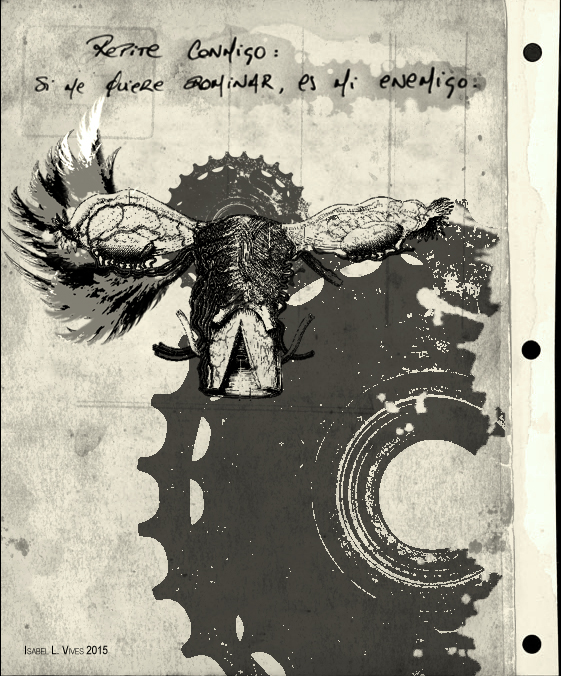 Repite conmigo:
Si me quiere dominar, es mi enemigo.
Isabel L. Vives 2015